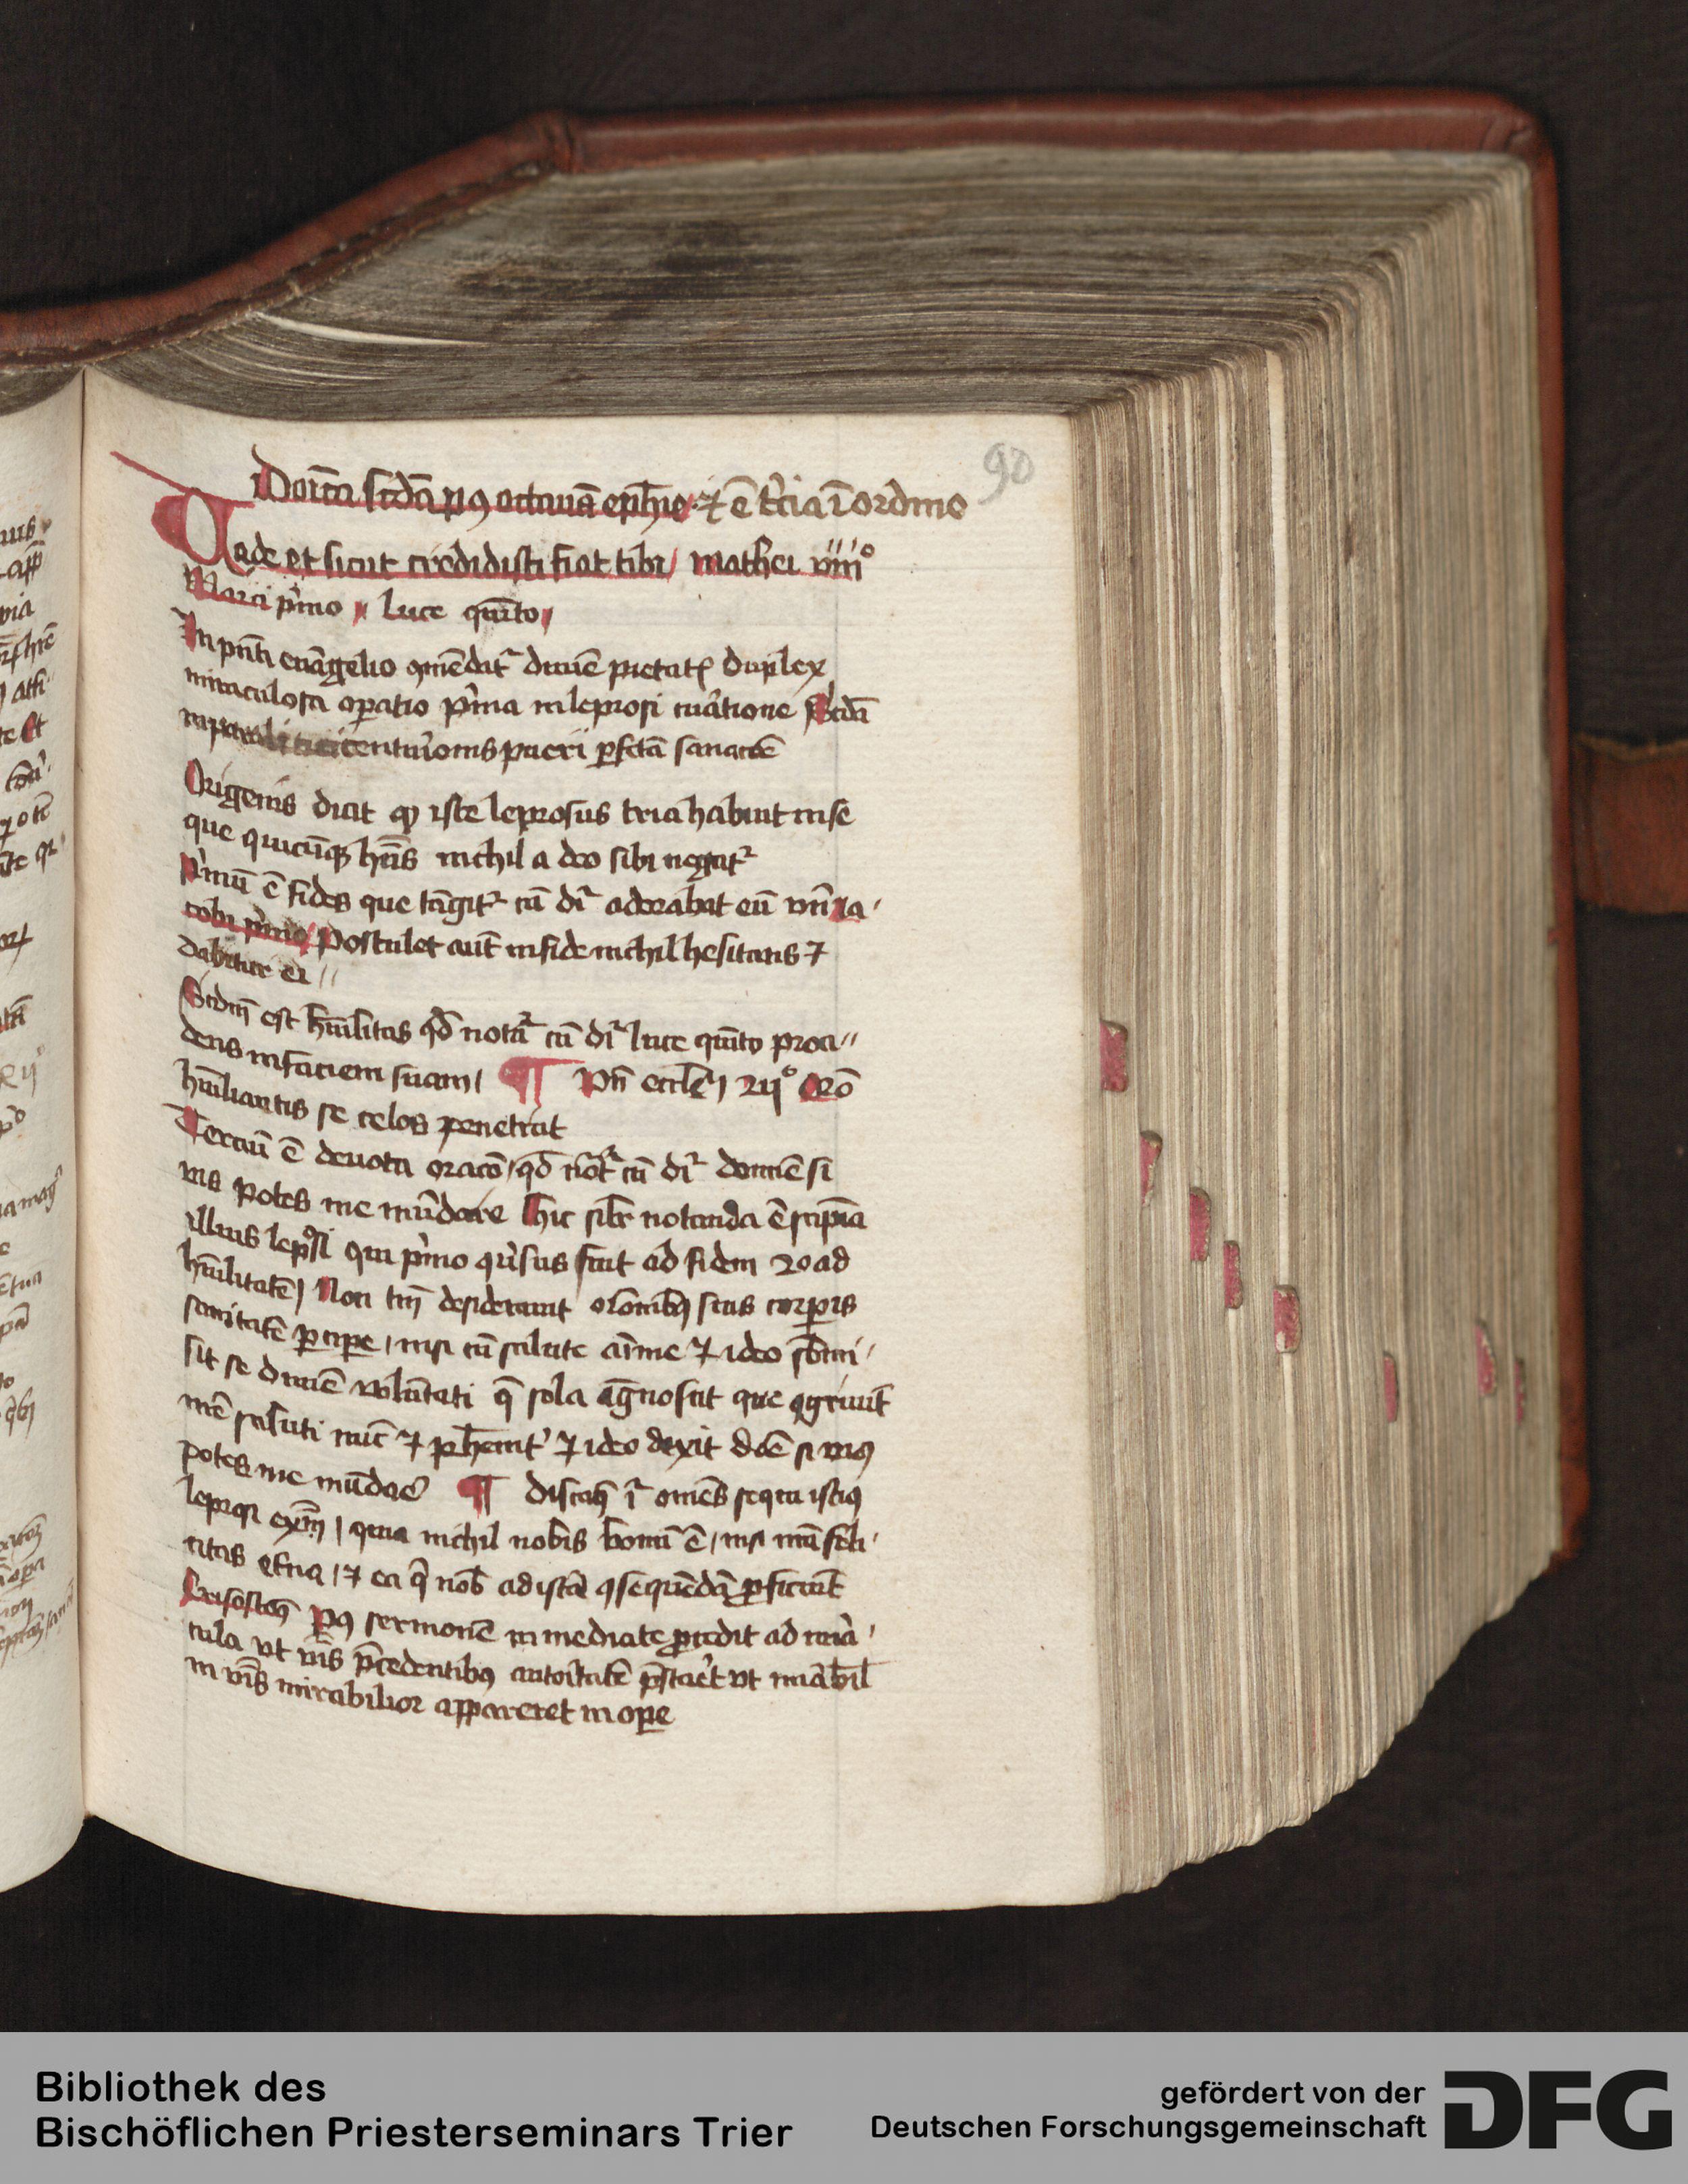 90
Doīca scdā pꝰ octauā epħie ⁊ ē t'cia ī ordine
Uade et sicut credidisti fiat tibi / mathei viii°
Marci p'mo / luce quīto /
In pn̄ti euāgelio ɔmēdat᷑ diuīe pietatꝭ duplex
miraculosa operatio p'ma in leprosi curatione Scdā
in centurionis pueri ꝑfctā sanacōē
Origenis dicit qꝫ iste leprosus tria habuit in se
que quicūqꝫ hn̄s nichil a deo sibi negat᷑
P'mū ē fides que tāgit᷑ cū dr̄ adorabat eū vn̄ ia
cobi p'mo / Postulet aut̄ in fide nichil hesitans ⁊
dabitur ei //
Scdm̄ est hūilitas qd̄ notat᷑ cū dr̄ luce quīto proci //
dens in faciem suam / ¶ Vn̄ eccl'i 2ii° Orō
hūiliantis se celos penetrat
Terciū ē deuota oracō / qd̄ not᷑ cū dr̄ domīe si
vis potes me mūdare Hic sil'r notanda ē sapīa
illius lep°si qui p'mo ɔu'sus fuit ad fidem 2o ad
hūilitatē / Non tm̄ desiderauit corporis
sanitatē ꝑcipe / nisi cū salute aīme ⁊ ideo sbmi /
sit se diuīe volūtati q̄ sola agnoscit que ɔgruūt
nr̄e saluti nūc ⁊ ꝑhēnit' ⁊ ideo dixit dn̄e si vis
potes me mūdar̄ ¶ Discamꝰ ī om̄ēs sequi istiꝰ
leprosi exm̄ / quia nichil nobis bonū ē / nisi n̄ra feli /
citas et'na / ⁊ ea q̄ nob̄ ad istā ɔsequēdā ꝓficiūt
Crisostomꝰ Pꝰ sermonē in mediate ꝓcedit ad mira /
cula vt v'bis p̄cedentibꝰ autoritatē p̄staret vt mirabil'
in v'bis mirabilior appareret in ope
Bibliothek des
Bischöflichen Priesterseminars Trier
gefördert von der
Deutschen Forschungsgemeinschaft
DFG